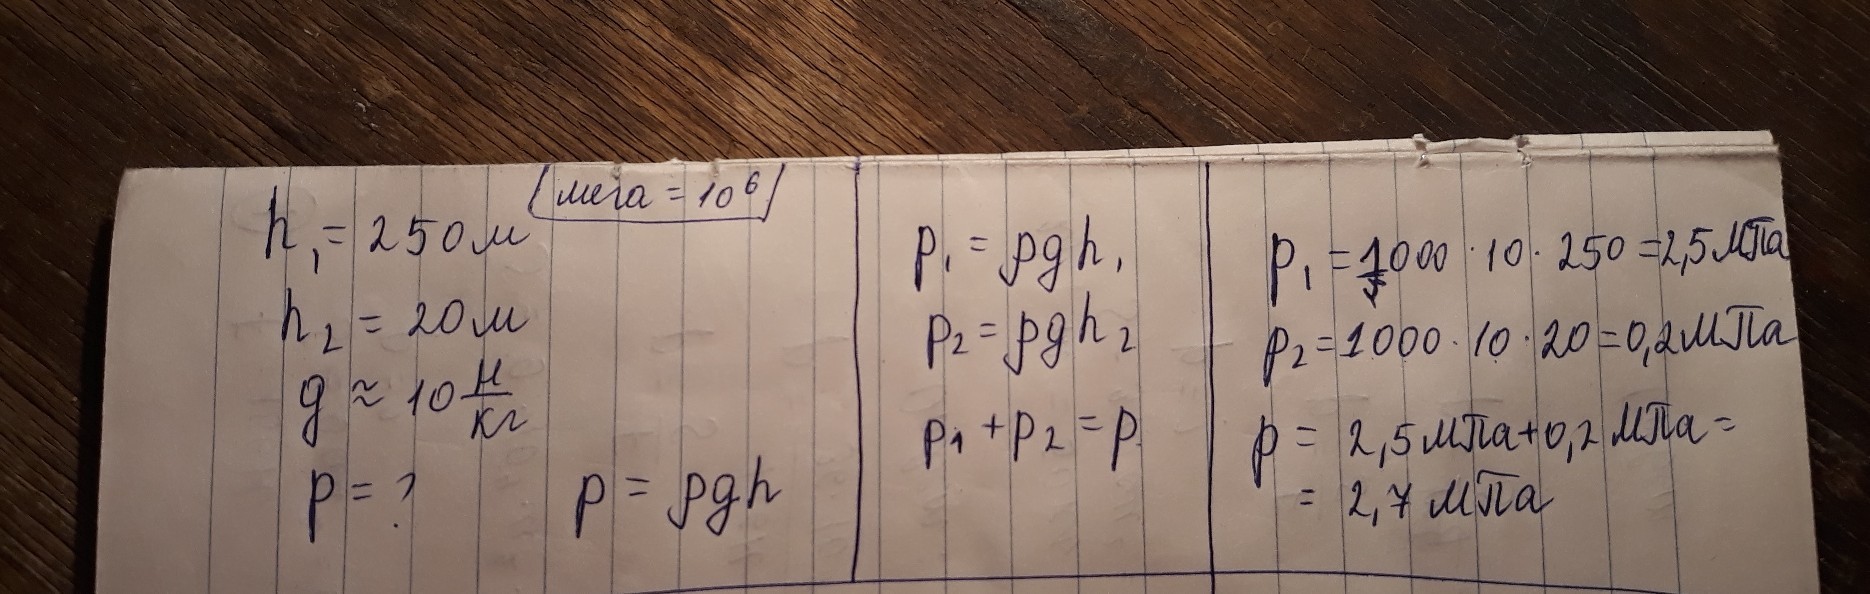 мега = 10⁶
h₁ = 250 м
h₂ = 20 м
g ≈ 10 Н/кг
p = ?
p = ρgh
p₁ = ρgh₁
p₂ = ρgh₂
p₁ + p₂ = p
p₁ = 1000 · 10 · 250 = 2,5 МПа
p₂ = 1000 · 10 · 20 = 0,2 МПа
p = 2,5 МПа + 0,2 МПа =
= 2,7 МПа